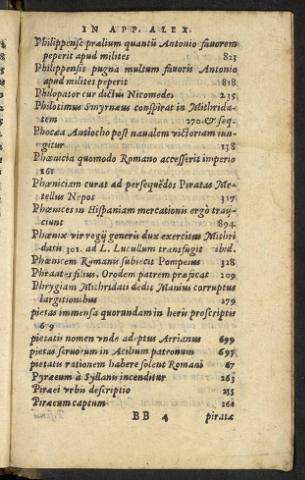 IN APP. ALEX.
Philippense prælium quantū Antonio fauorem
peperit apud milites 823
Philippensis pugna multum fauoris Antonio
apud milites peperit 818
Philopator cur dictus Nicomedes 235
Philotimus Smyrnæus conspirat in Mithrida-
tem 270.& seq.
Phocæa Antiocho post naualem victoriam iun-
gitur 138
Phœnicia quomodo Romano accesserit imperio
161
Phœniciam curat ad persequēdos Piratas Me-
tellus Nepos 317
Phœnices in Hispaniam mercationis ergò traij-
ciunt 894
Phœnix vir regij generis dux exercitus Mithri
datis 301. ad L. Lucullum transfugit ibid.
Phœnicem Romanis subiecit Pompeius 328
Phraates filius, Orodem patrem præfocat 209
Phrygiam Mithridati dedit Manius corruptus
largitionibus 279
pietas immensa quorundam in heris proscriptis
659
pietatis nomen vnde adeptus Arrianus 699
pietas seruorum in Acilium patronum 697
pietatis rationem habere solent Romani 67
Pyræeum à Syllanis incenditur 263
Piræei vrbis descriptio 255
Piræeum captum 261
BB 4 piratæ